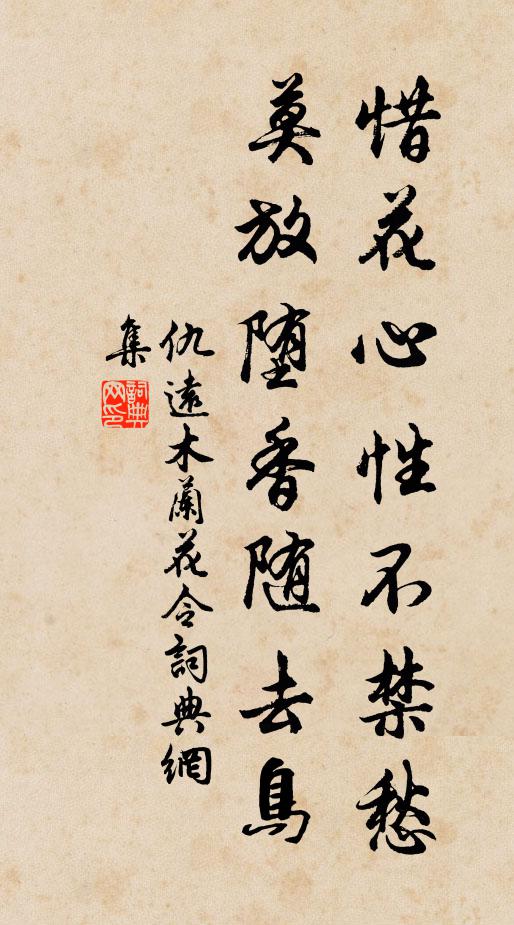 惜花心性不禁愁
莫放堕香随去鳥
仇遠木蘭花令詞典網
集
詞典
网印